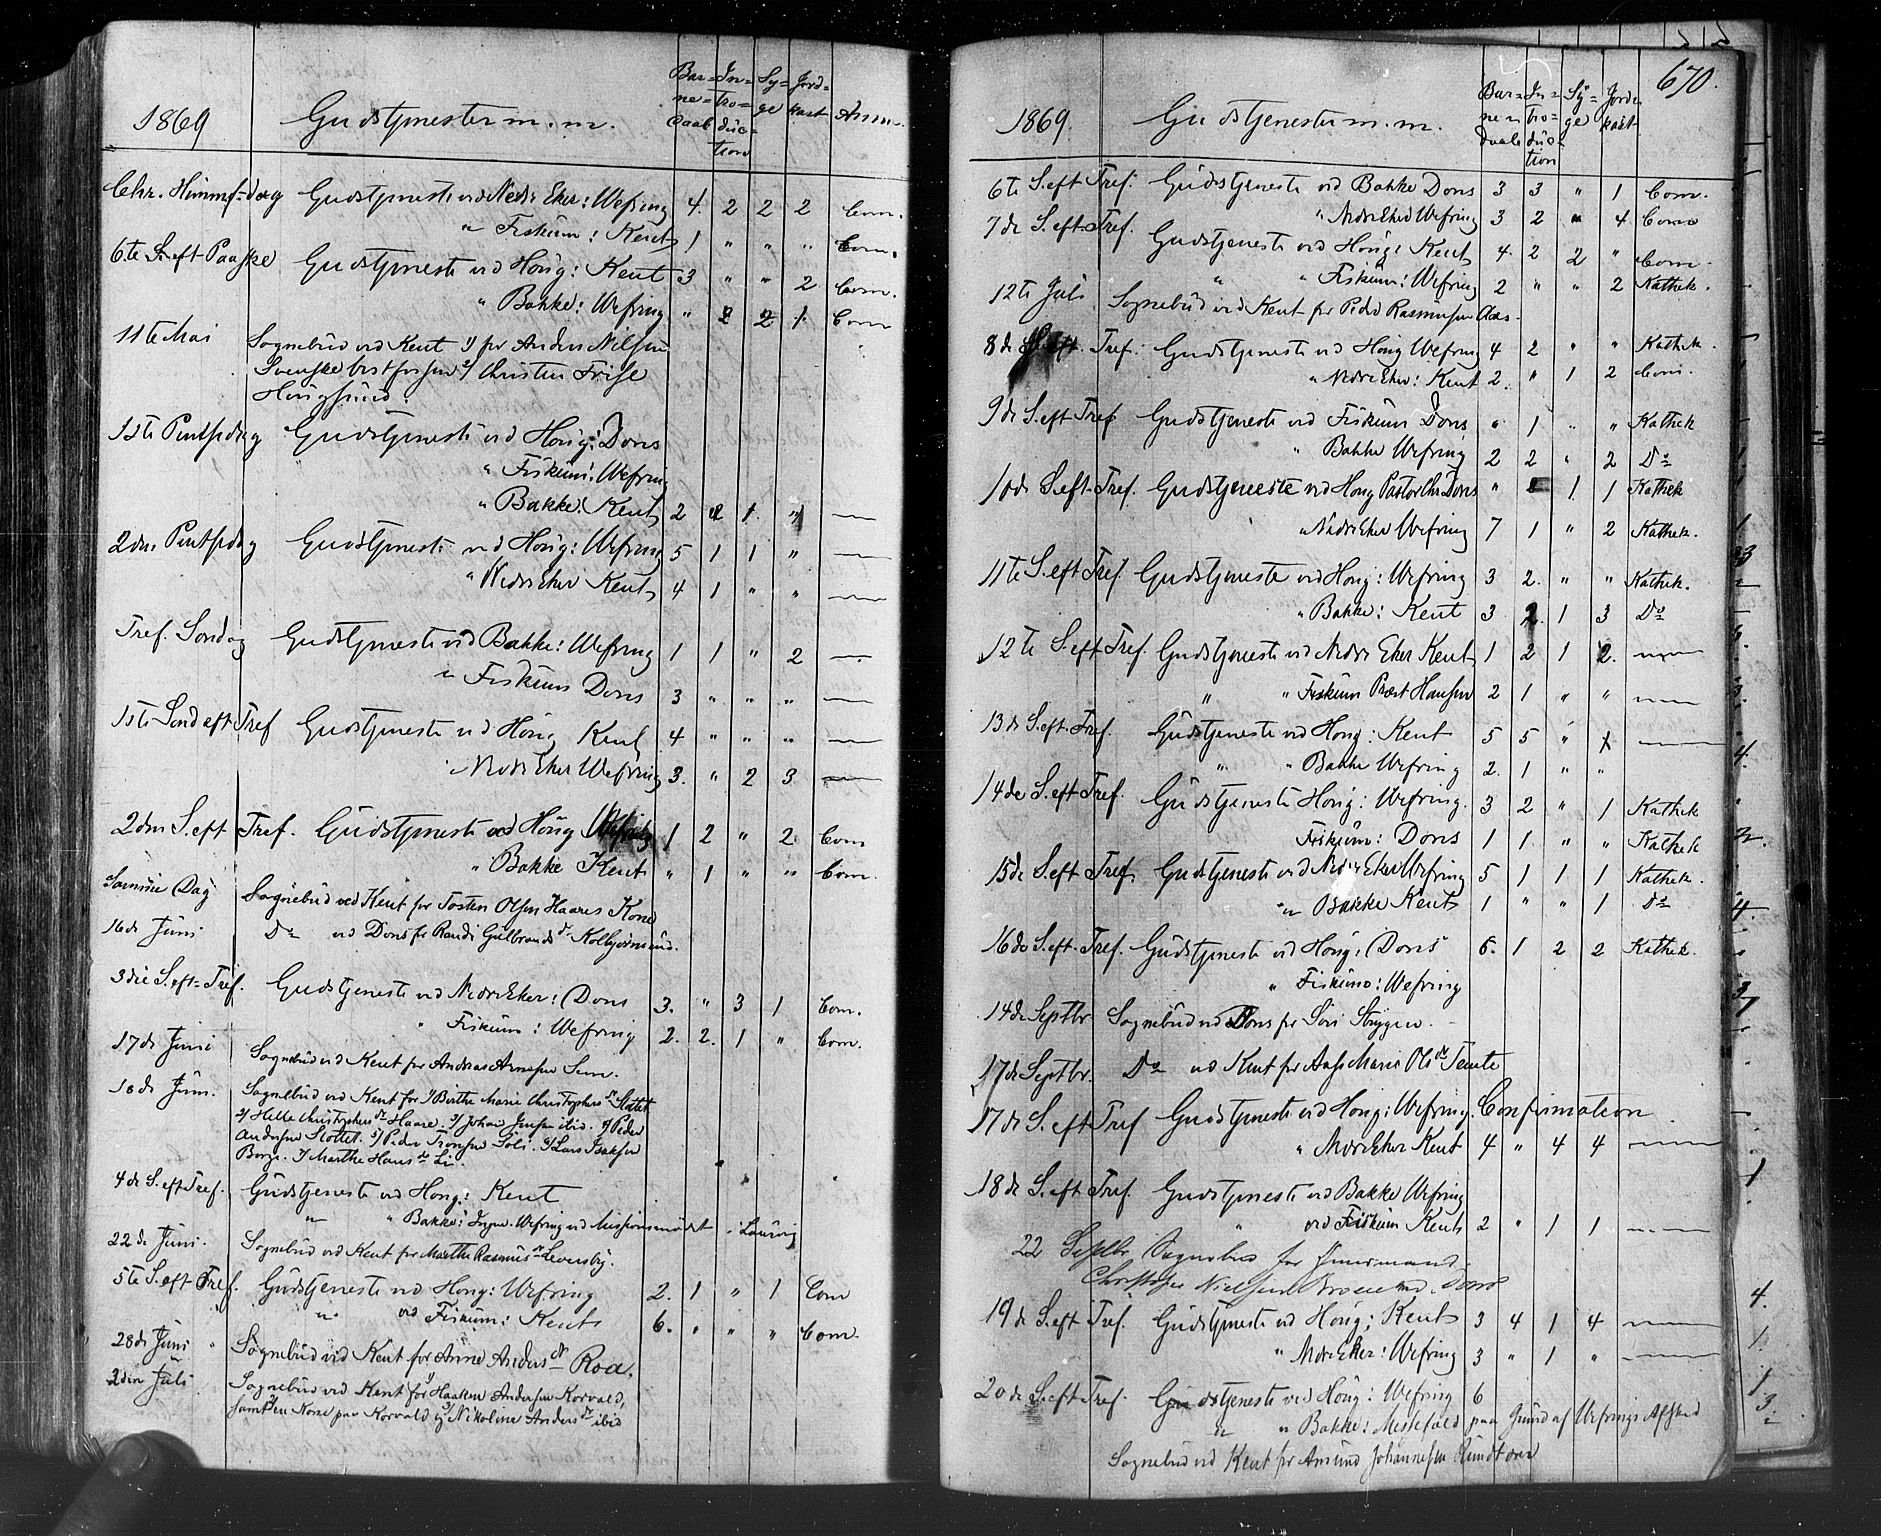 1869 Gudstjenester m. m. Bar=ne=daab In=tro=duc=tion Sy=ge Jord=kast Anm.
Chr. Himmf=dag Gudstjeneste ved Nedre Eker: Wefring 4. 2 2 2 Com.
" Fiskum: Kent 1 " " " Com.
6te S. eft Paaske Gudstjeneste ved Houg: Kent 3 " " 2 Com.
" Bakke: Wefring " 2 2 1. Com
11te Mai Sognebud ved Kent 1/ for Anders Nilsen
Svenske 2/ Christen Friise
Hougsund.
1ste Pintsedag Gudstjeneste ved Houg: Dons
" Fiskum: Wefring
" Bakke: Kent 2 2 1. " —
2den Pintsedag Gudstjeneste ved Houg: Wefring 5 1 1 " —
" Nedre Eker Kent 4 1 " " —
Tref. Sondag Gudstjeneste ved Bakke: Wefring 1 1 " 2 —
" Fiskum Dons 3 " " " —
1ste Sond eft Tref Gudstjeneste ved Houg Kent 4 " " " —
" Nedre Eker Wefring 3. " 2 3 —
2den S. eft Tref. Gudstjeneste ved Houg Wefring 1 2 " 2. Com
" Bakke Kent " 1 " " Com.
Samme Dag Sognebud ved Kent for Tosten Olsen Haares Kone
16de Juni Do ved Dons for Randi Gulbrandsdr Kolbjørnsrud.
3die S. eft= Tref. Gudstjeneste ved Nedre Eker: Dons 3. " 3 1 Com.
" Fiskum: Wefring 2. 2. 1 " Com.
17de Juni Sognebud ved Kent for Andreas Arnesen Sem.
18de Juni. Sognebud ved Kent for 1/ Birthe Marie Christophersdr Stottet
2/ Helle Christophersdr Haare. 3/ Johan Jensen ibid. 4/ Peder
Andersen Stottet. 5/ Peder Tronsen Soli. 6/ Lars Isaksen
Borge. 7/ Marthe Hansdr Li.
4de S. eft Tref. Gudstjeneste ved Houg: Kent
" " Bakke: Ingen. Wefring ved Missionsmødet i Laurvig
22de Juni. Sognebud ved Kent for Marthe Rasmusdr Leversby.
5te S. eft Tref. Gudstjeneste ved Houg: Wefring 2. 1 " 1 Com
" ved Fiskum: Kent 6. " " " Com.
28de Juni " Sognebud ved Kent for Anne Andersdr Roa.
2den Juli Sognebud ved Kent for 1/ Haaken Andersen Korvald,
samt 2/ en Kone paa Korvald og 3/ Nikoline Andersdr ibid
670.
1869. Gudstjenester m. m. Bar=ne=daab In=tro=duc=tion Sy=ge Jord=kast
6te S. eft Tref. Gudstjeneste ved Bakke Dons 3 3 " 1 Com.
" Nedre Eker Wefring 3 2 " 4 Com
7de S. eft Tref. Gudstjeneste ved Houg: Kent 4. 2 2 " Com.
" " Fiskum: Wefring 2 " " 2 Kathek.
12te Juli Sognebud ved Kent for Peder Rasmusen Aas.
8de S. eft. Tref. Gudstjeneste ved Houg Wefring 4 2 " " Kathek.
" Nedre Eker: Kent 2. " 1 2 Com.
9de S. eft Tref Gudstjeneste ved Fiskum Dons " 1 " " Kathek
" Bakke Wefring 2 2 " 2 Do
10de S. eft Tref. Gudstjeneste ved Houg Pastor Chr. Dons " 1 1 Kathek
" Nedre Eker Wefring 7 1 " 2 Kathek.
11te S. eft Tref. Gudstjeneste ved Houg: Wefring 3 2. " " Kathek.
" Bakke: Kent 3 2. 1 3 Do
12te S. eft Tref. Gudstjeneste ved Nedre Eker Kent 1 2 1 2. —
" " Fiskum Præst Hansen 2 1 " " —
13de S. eft Tref. Gudstjeneste ved Houg: Kent 5 5 " 1 —
" " Bakke Wefring 2. 1 " "
14de S. eft Tref. Gudstjeneste Houg: Wefring. 3 2 " 1 Kathek
Fiskum: Dons 1 1. " " Kathek
15de S. eft Tref. Gudstjeneste ved Nedre Eker Wefring 5 1 1 1 Kathek.
" Bakke Kent 1 " " 1 Do
16de S. eft. Tref. Gudstjeneste ved Houg: Dons 6. 1 2 2 Kathek.
" Fiskum: Wefring
14de Septbr Sognebud ved Dons for Siri Strygen.
17de Septbr. Do ved Kent for Aase Marie Olsdr Temte
17de S. eft Tref Gudstjeneste ved Houg: Wefring. Confirmation
" Nedre Eker Kent 4 " 4 4 —
18de S. eft Tref. Gudstjeneste ved Bakke Wefring
" ved Fiskum Kent 2 " 1 1 —
22 Septbr Sognebud for
Christofer Nielsen ved Dons
19de S. eft Tref. Gudstjeneste ved Houg: Kent 3 4 1 4 —
" Nedre Eker: Wefring 3 " 1 " —
20de S. eft Tref. Gudstjeneste ved Houg: Wefring 6
" " Bakke: Messefald paa Grund af Wefrings Afsked
Sognebud ved Kent for Amund Johannesen Rundtom